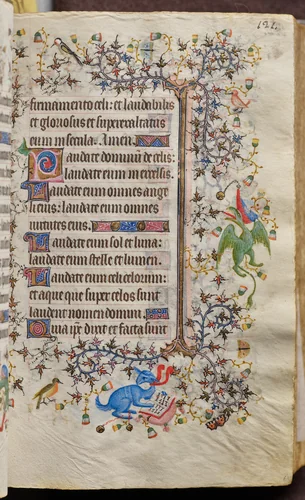 192
firmamento celi: et laudabilis
et gloriosus et superexaltatus
eum in secula. Amen.
Laudate dominũ de celis:
laudate eum in excelsis.
Laudate eum omnes ange
li eius: laudate eum omnes
uirtutes eius.
Laudate eum sol et luna:
laudate eum stelle et lumen.
Laudate eum celi celorum:
et aque que super celos sunt
laudent nomen domini.
Quia ip̃e dixit et facta sunt